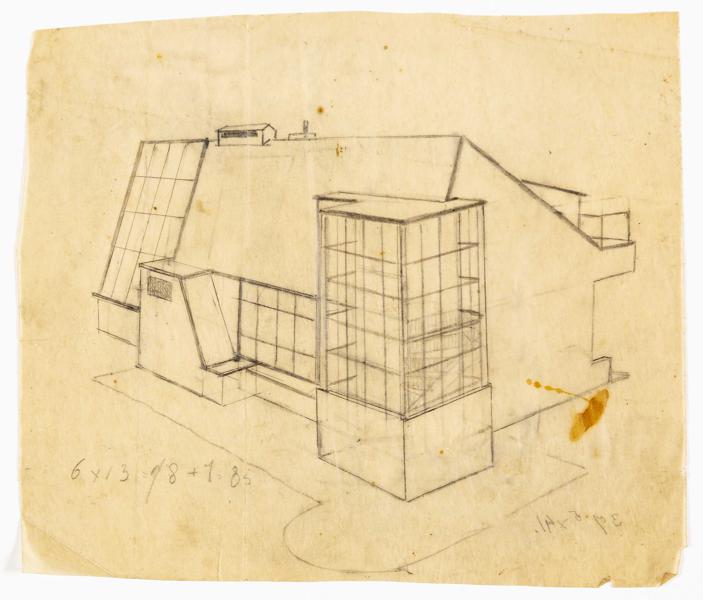 6 x 13 = 78 + 7 = 85
39.5 x 41.